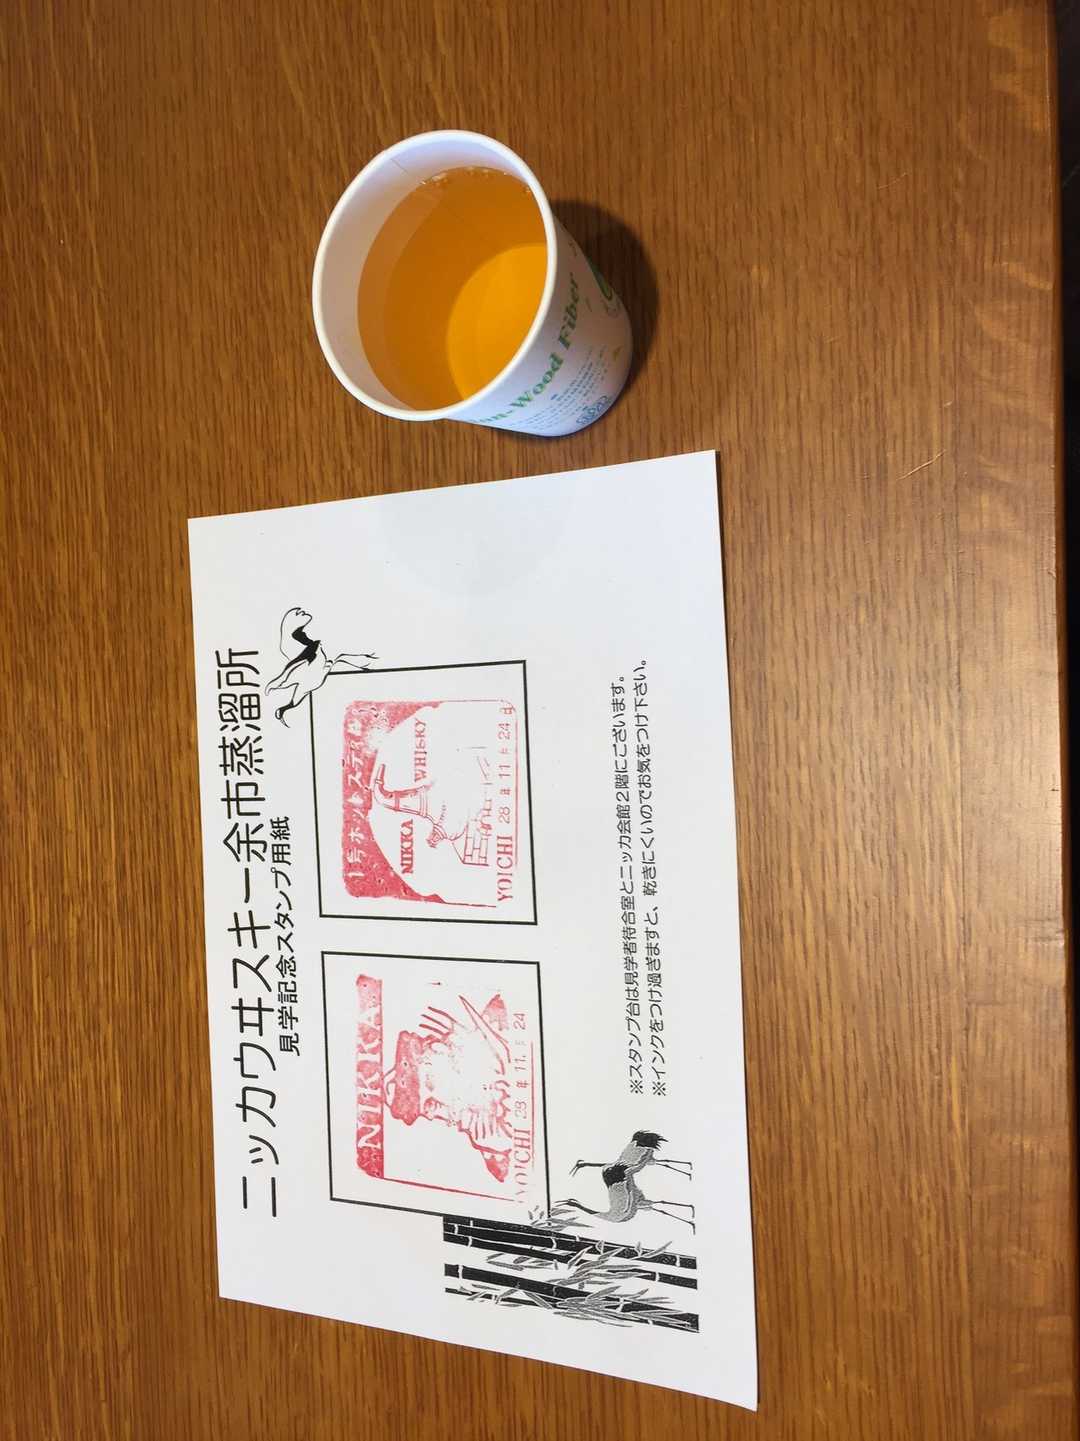 ニッカウヰスキー余市蒸溜所
見学記念スタンプ用紙
NIKKA
YOICHI 28 年 11 月 24
NIKKA WHISKY
YOICHI 28 年 11 月 24 日
※スタンプ台は見学者待合室とニッカ会館2階にございます。
※インクをつけ過ぎますと、乾きにくいのでお気をつけ下さい。
-Wood Fiber